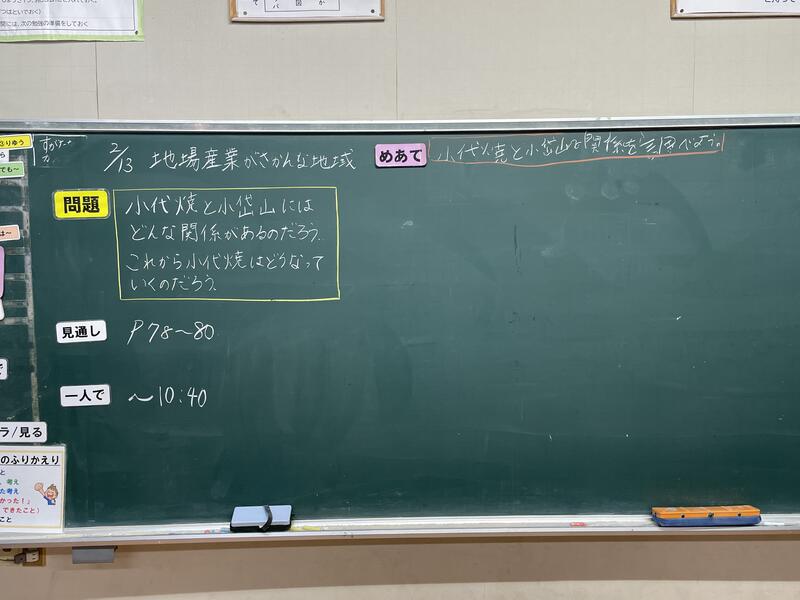 間には、次の勉強の準備をしておく
2/13 地場産業がさかんな地域
めあて
小代焼と小岱山の関係を調べよう。
問題
小代焼と小岱山には
どんな関係があるのだろう。
これから小代焼はどうなって
いくのだろう。
見通し
P78〜80
一人で
〜10:40
ラ/見る
のふりかえり
、考え
た考え
かった!」
できたこと)
こと